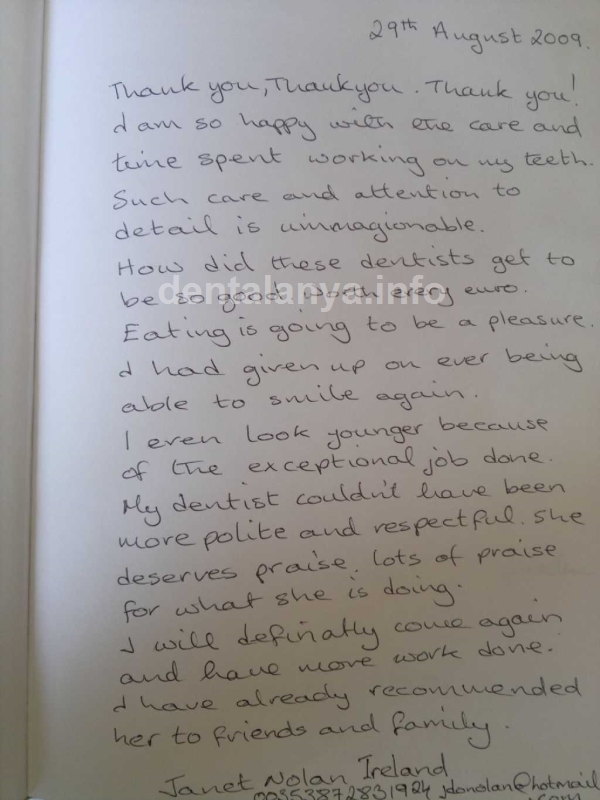 29th August 2009.
Thank you, Thankyou. Thank you!
I am so happy with the care and
time spent working on my teeth.
Such care and attention to
detail is unimmagionable.
How did these dentists get to
dentalanya.info
be so good worth every euro.
Eating is going to be a pleasure.
I had given up on ever being
able to smile again.
I even look younger because
of the exceptional job done.
My dentist couldn't have been
more polite and respectful. She
deserves praise. lots of praise
for what she is doing.
I will definatly come again
and have more work done.
I have already recommended
her to friends and family.
Janet Nolan Ireland
00353872831924 jdonolan@hotmail
.com